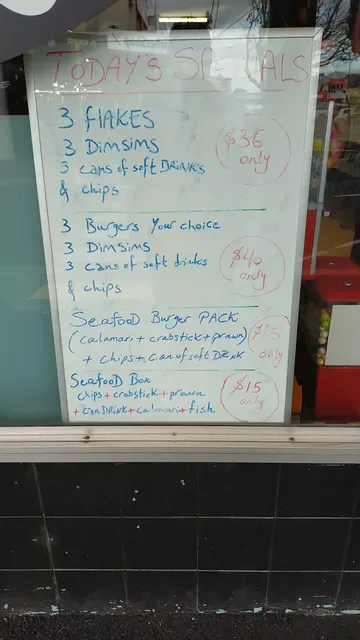 TODAY'S SPECIALS
3 flAKES
3 Dimsims
3 cans of soft DRiNKS
& chips
$36
only
3 Burgers Your choice
3 Dimsims
3 cans of soft drinks
& chips
$40
only
Seafood Burger PACK
(calamari + crabstick + prawn)
+ chips + can of soft DRiNK
$15
only
Seafood Box
chips + crabstick + prawn
+ can DRiNK + calamari + fish
$15
only